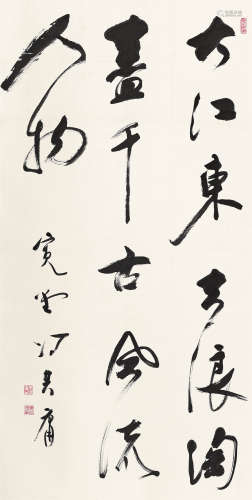 大江東去浪淘
盡千古風流
人物
寬堂馮其庸